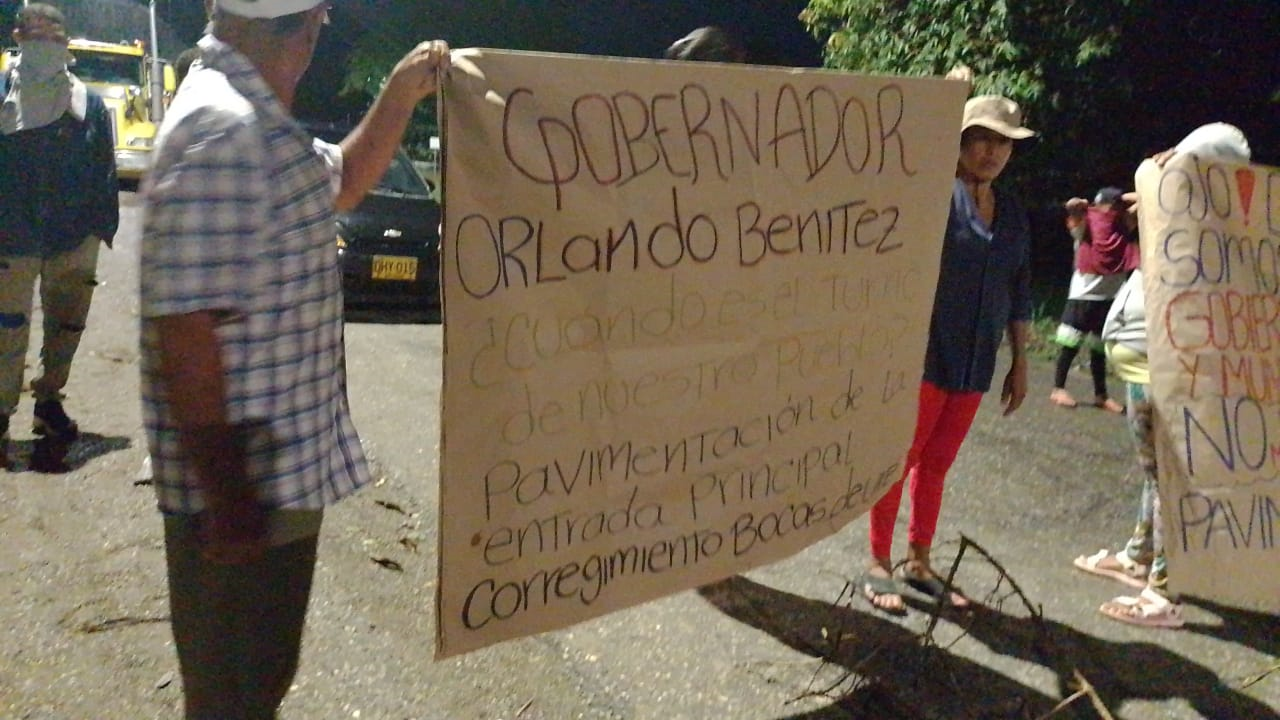 GOBERNADOR
ORLANDO BENITEZ
¿Cuando es el Turno
de nuestro Pueblo?
Pavimentación de la
entrada Principal
Corregimiento Bocas de
OJO!
SOMO
GOBIER
Y MUN
NO
PAVIM
QHY 015